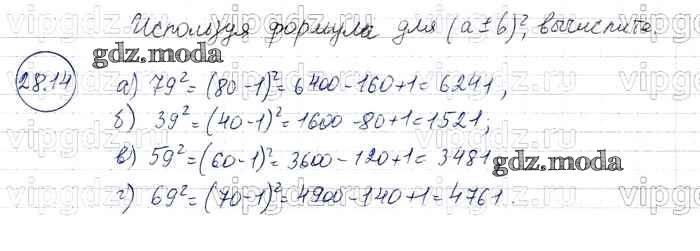 Используя формула для (a ± b)², вычислите
gdz.moda
28.14
а) 79² = (80-1)² = 6400 - 160 + 1 = 6241,
б) 39² = (40-1)² = 1600 - 80 + 1 = 1521;
в) 59² = (60-1)² = 3600 - 120 + 1 = 3481
gdz.moda
г) 69² = (70-1)² = 4900 - 140 + 1 = 4761.